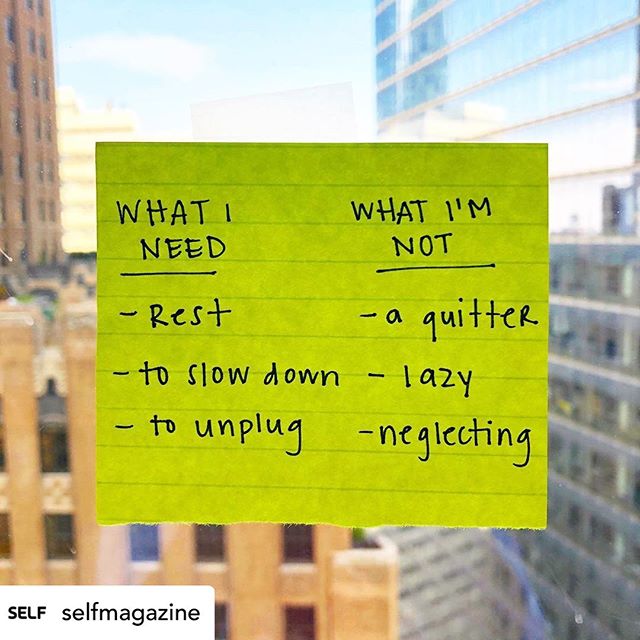 WHAT I
NEED
- Rest
- to slow down
- to unplug
WHAT I'M
NOT
- a quitter
- lazy
- neglecting
SELF selfmagazine